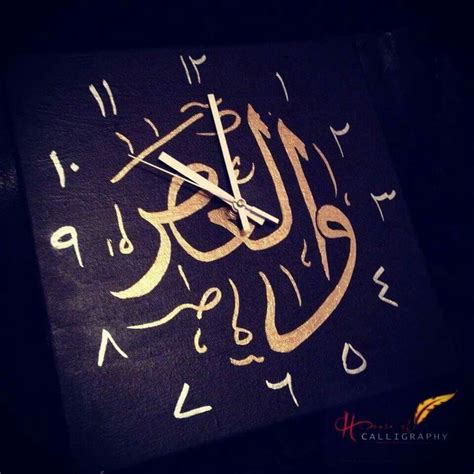 ١٢
١
٢
٣
٤
٥
٦
٧
٨
٩
١٠
١١
والعصر
House of
CALLIGRAPHY